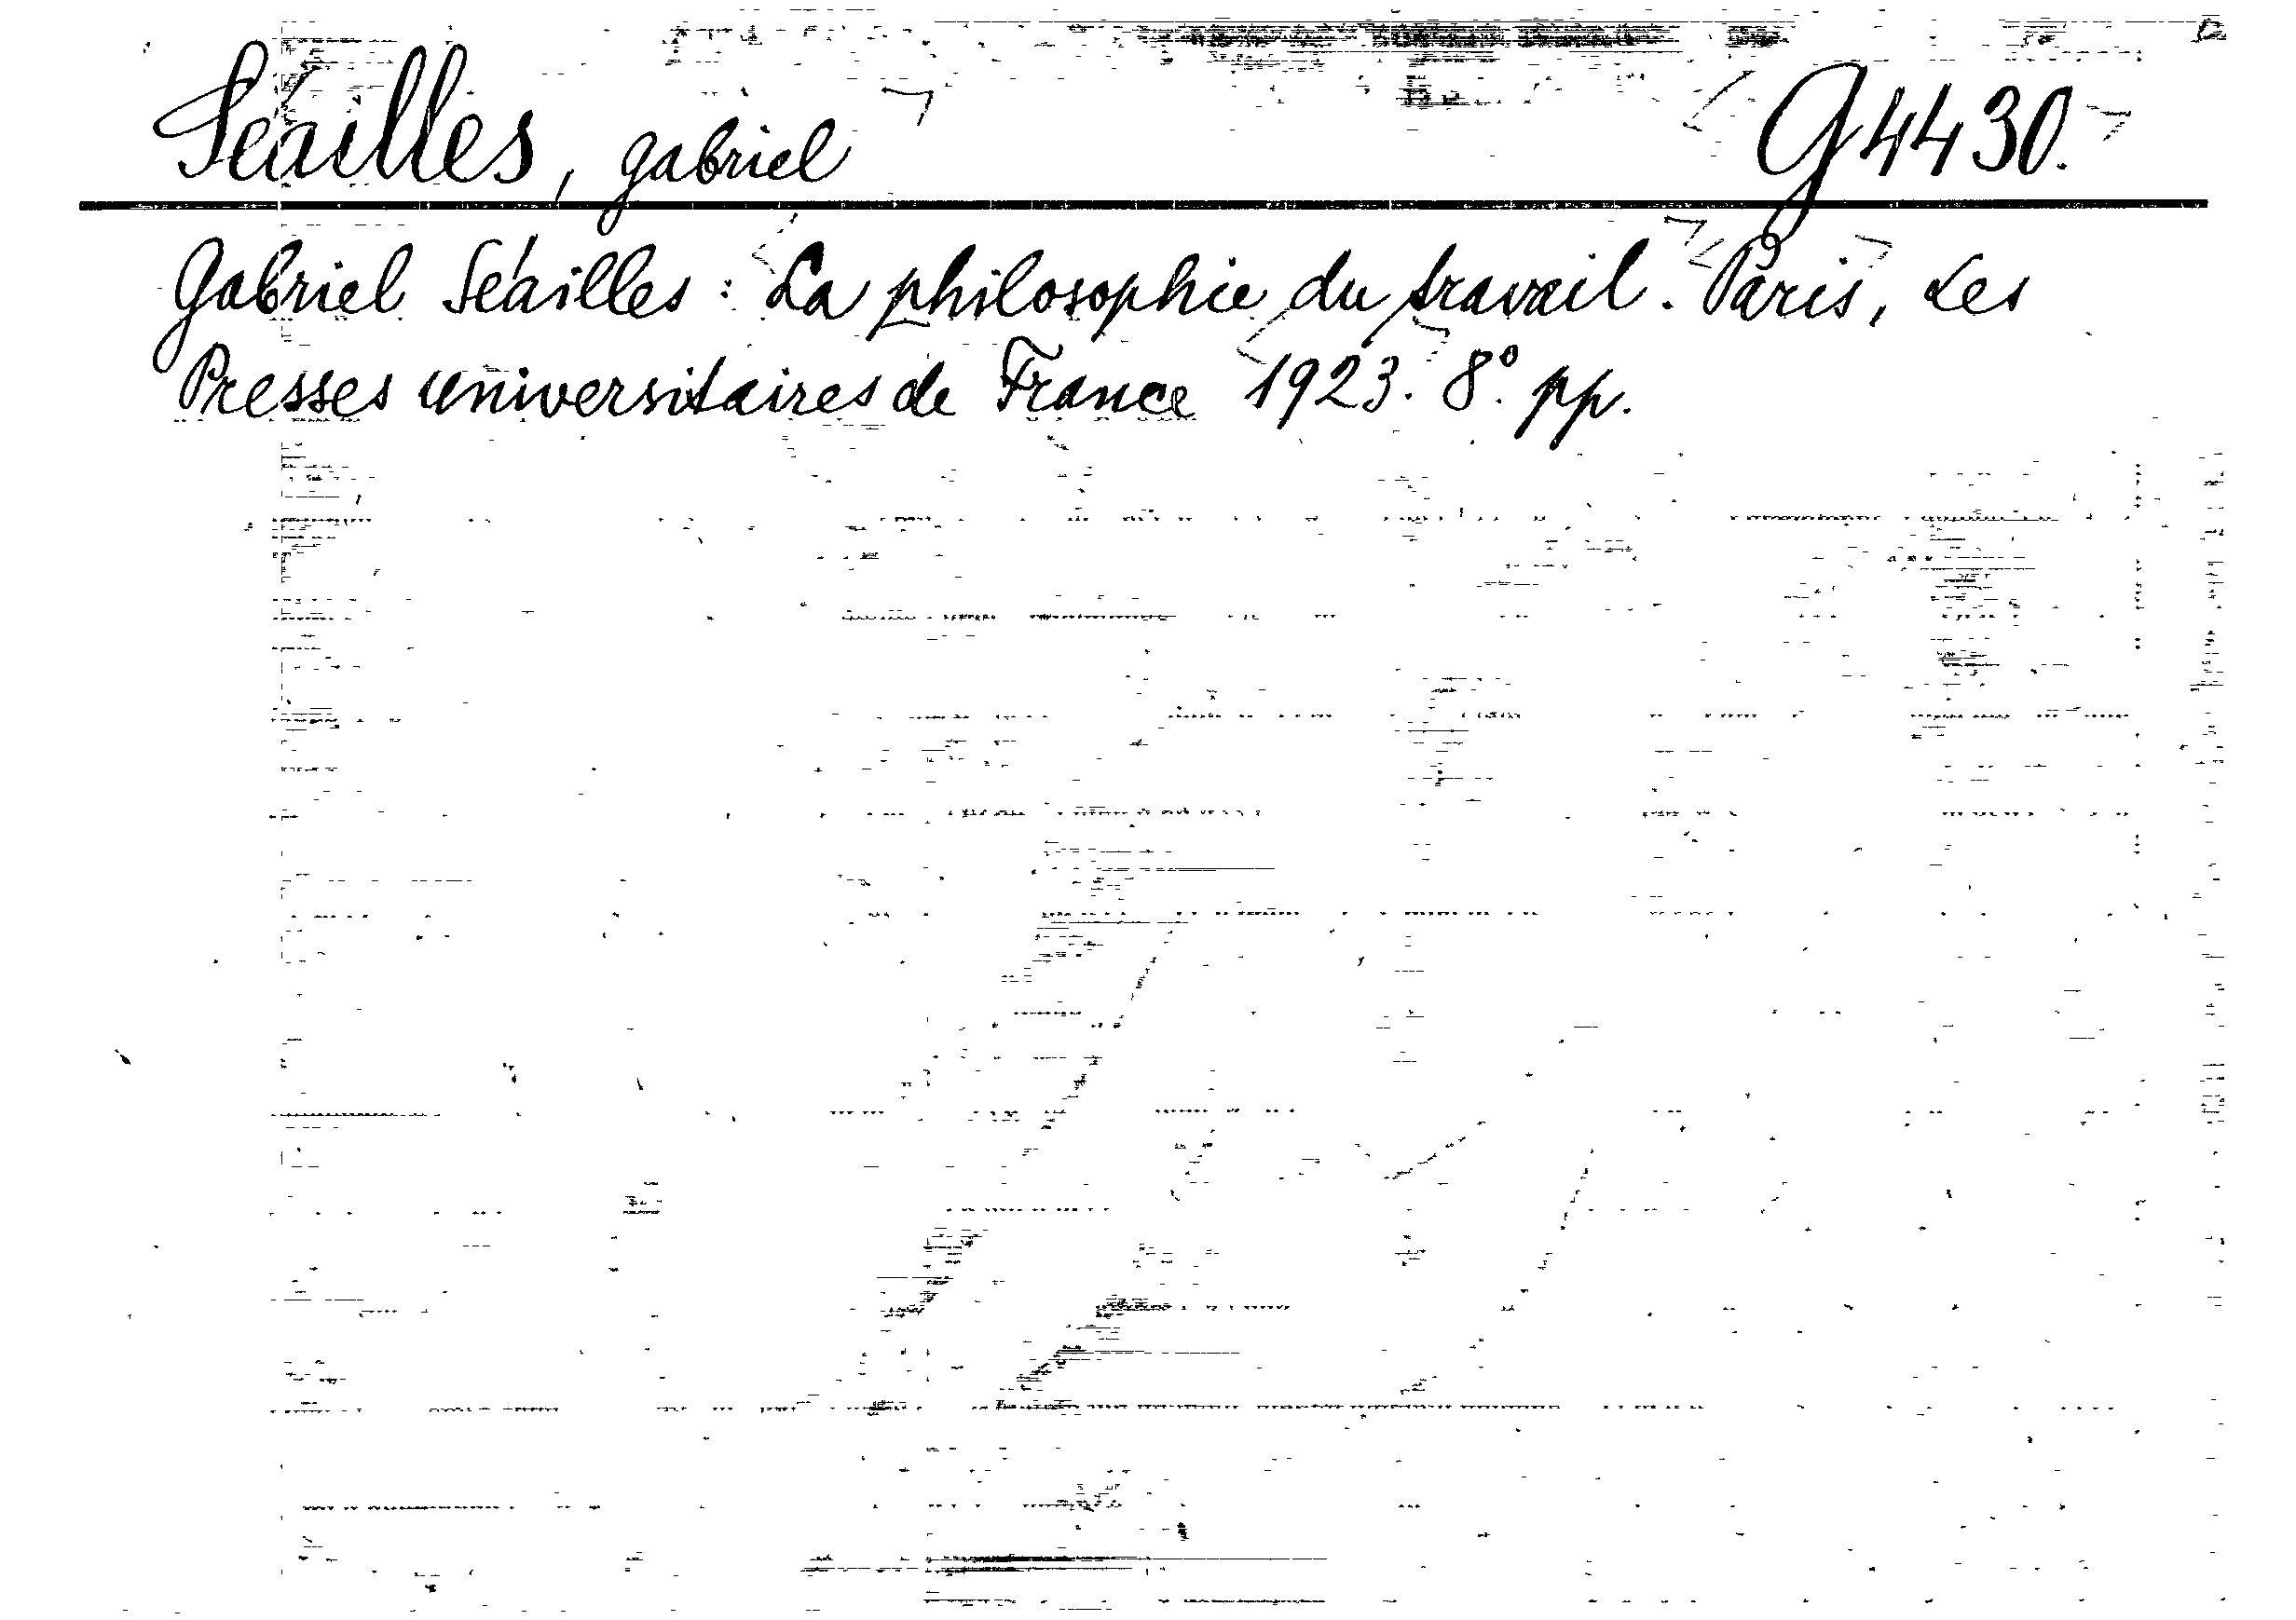 Séailles, Gabriel G4430.
Gabriel Séailles: La philosophie du travail. Paris, Les
Presses universitaires de France 1923. 8° pp.